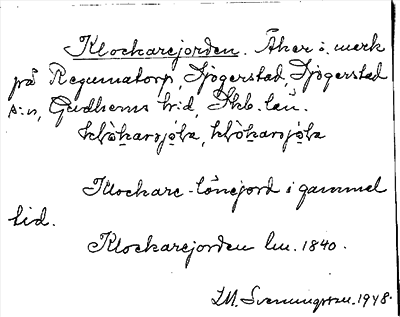 Klockarejorden. Åker i. mark
på Regumatorp, Sjögerstad, Sjögerstad
s:n, Gudhems h:d, Skb. län.
Klockare-lönejord i gammel
tid.
Klockarejorden lm. 1840.
I.M. Svenungsson. 1948.